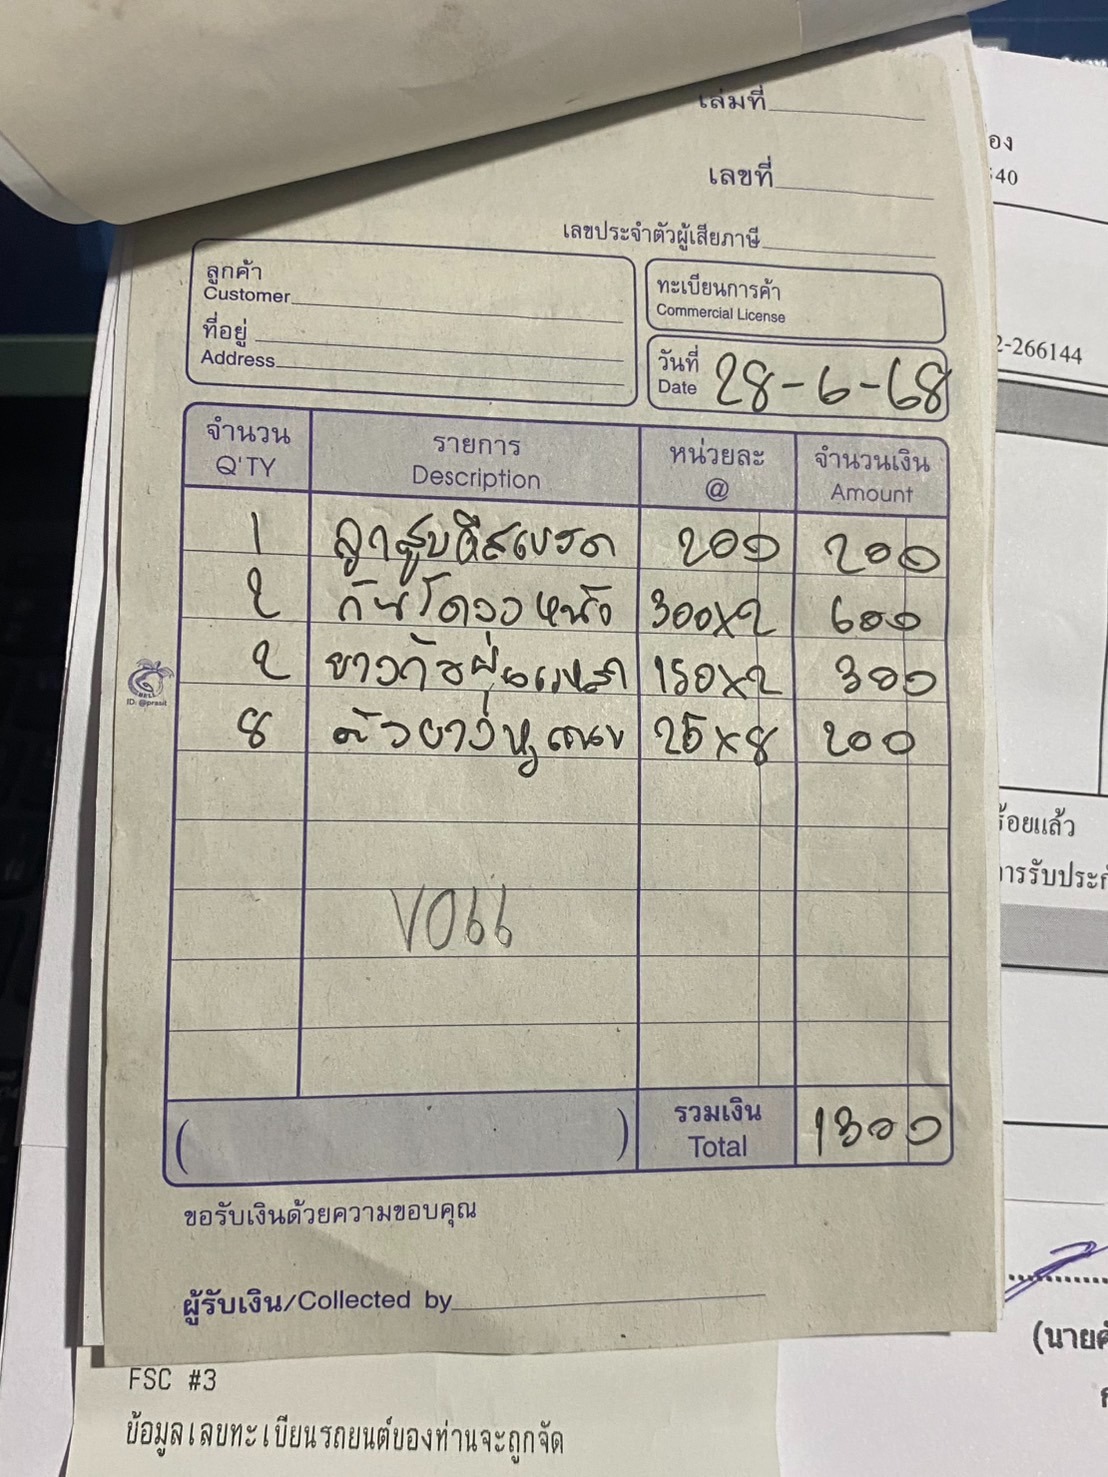 เล่มที่
เลขที่
เลขประจำตัวผู้เสียภาษี
ลูกค้า
Customer
ที่อยู่
Address
ทะเบียนการค้า
Commercial License
วันที่
Date 28-6-68
จำนวน รายการ หน่วยละ จำนวนเงิน
Q'TY Description @ Amount
1 ลูกสูบดิสเบรค 200 200
2 กันโคลงหนัง 300x2 600
2 ยางกันฝุ่น 150x2 300
8 ตัวยาง 25x8 200
BELL
ID: @prasit
VO66
( ) รวมเงิน 1300
Total
ขอรับเงินด้วยความขอบคุณ
ผู้รับเงิน/Collected by
FSC #3
ข้อมูลเลขทะเบียนรถยนต์ของท่านจะถูกจัด
อง
40
2-266144
ร้อยแล้ว
การรับประกั
(นายศั